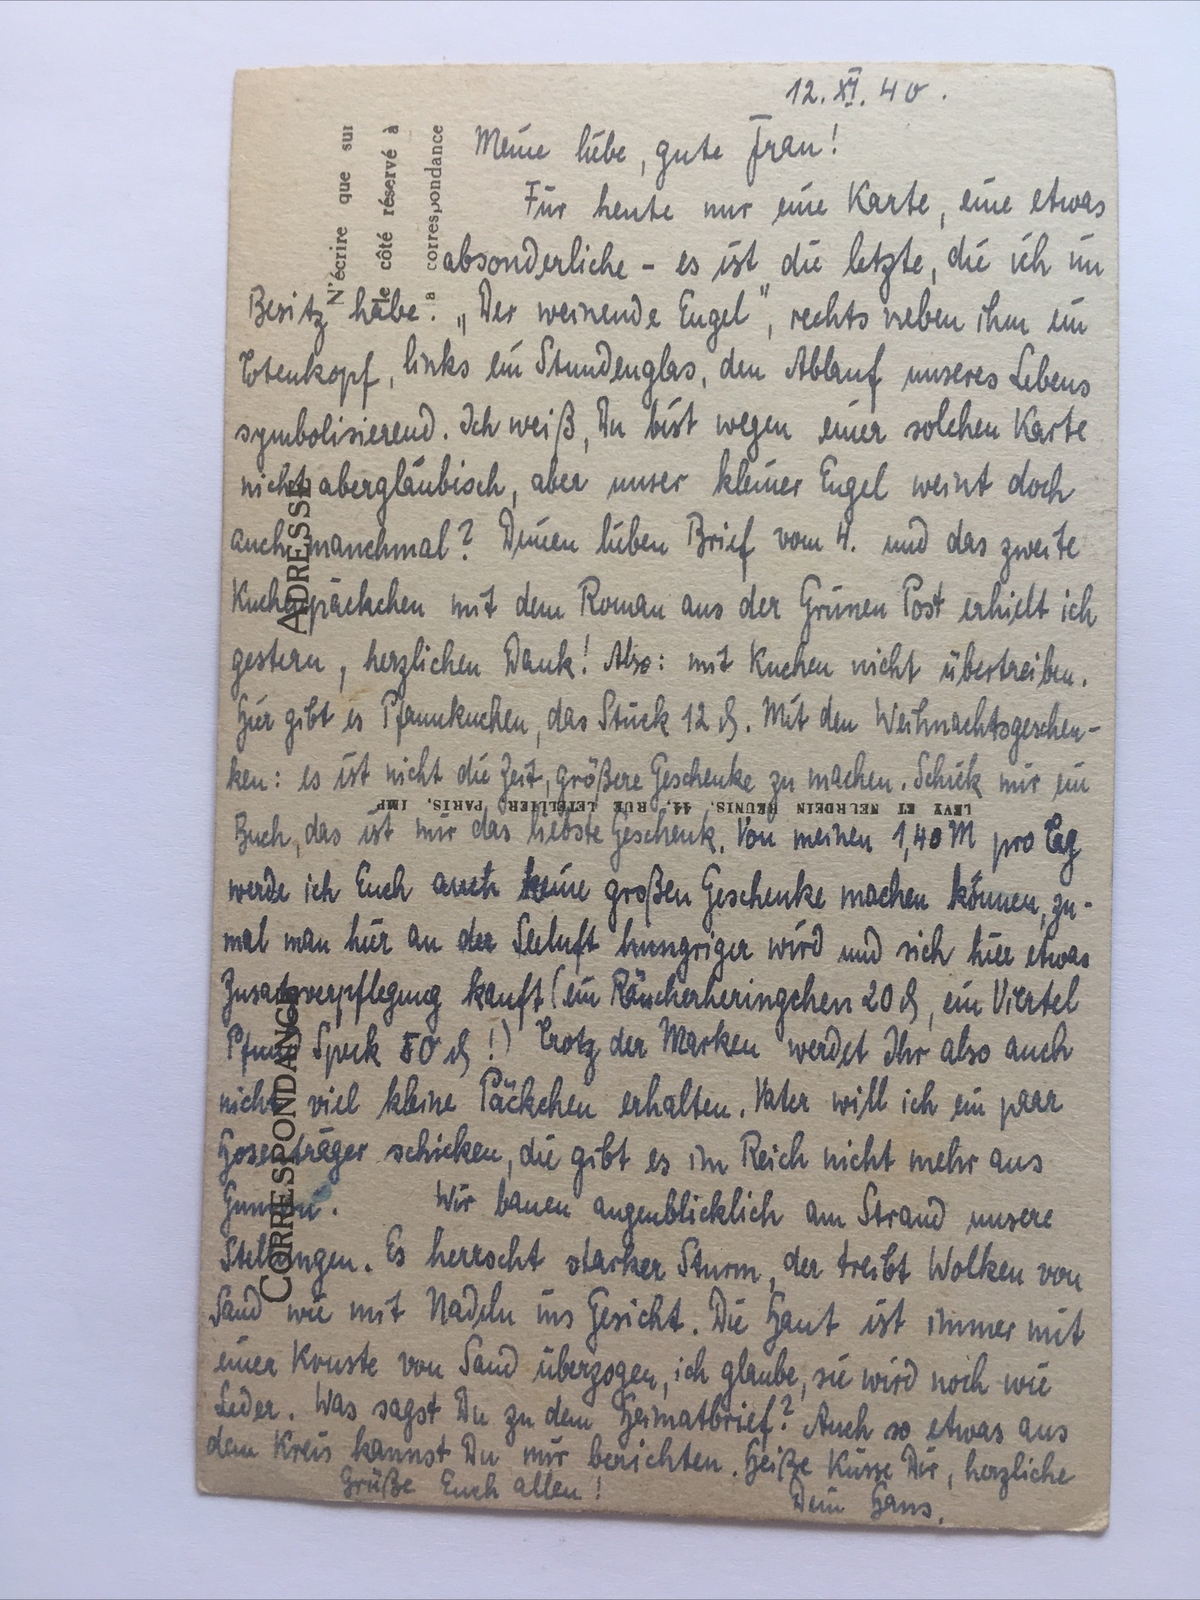 12. XI. 40.
Meine liebe, gute Frau!
Für heute nur eine Karte, eine etwas
absonderliche - es ist die letzte, die ich im
Besitz habe. „Der weinende Engel", rechts neben ihm ein
Totenkopf, links ein Stundenglas, den Ablauf unseres Lebens
symbolisierend. Ich weiß, Du bist wegen einer solchen Karte
nicht abergläubisch, aber unser kleiner Engel weint doch
auch manchmal? Deinen lieben Brief vom 4. und das zweite
Kuchenpäckchen mit dem Roman aus der Grünen Post erhielt ich
gestern, herzlichen Dank! Also: mit Kuchen nicht übertreiben.
Hier gibt es Pfannkuchen, das Stück 12 ₰. Mit den Weihnachtsgeschen-
ken: es ist nicht die Zeit, größere Geschenke zu machen. Schick mir ein
Buch, das ist mir das liebste Geschenk. Von meinen 1,40 M pro Tag
werde ich Euch auch keine großen Geschenke machen können, zu-
mal man hier an der Seeluft hungriger wird und sich hier etwas
Zusatzverpflegung kauft (ein Räucherheringchen 20 ₰, ein Viertel
Pfund Speck 50 ₰!) Trotz der Marken werdet Ihr also auch
nicht viel kleine Päckchen erhalten. Vater will ich ein paar
Hosenträger schicken, die gibt es im Reich nicht mehr aus
Gummi. Wir bauen augenblicklich am Strand unsere
Stellungen. Es herrscht starker Sturm, der treibt Wolken von
Sand wie mit Nadeln ins Gesicht. Die Haut ist immer mit
einer Kruste von Sand überzogen, ich glaube, sie wird noch wie
Leder. Was sagst Du zu dem Heimatbrief? Auch so etwas aus
dem Kreis kannst Du mir berichten. Heiße Küsse Dir, herzliche
Grüße Euch allen!
Dein Hans.
N'écrire que sur
le côté réservé à
a correspondance
ADRESSE
CORRESPONDANCE
LEVY ET NEURDEIN REUNIS, 44, RUE LETELLIER, PARIS, IMP.